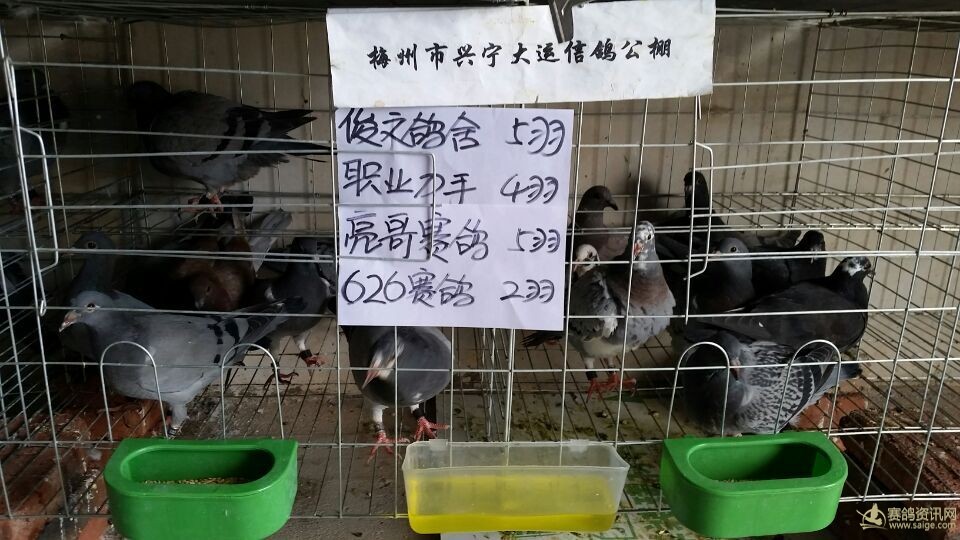 梅州市兴宁大运信鸽公棚
俊文鸽舍 5羽
职业刀手 4羽
亮哥赛鸽 5羽
626赛鸽 2羽
赛鸽资讯网
www.saige.com